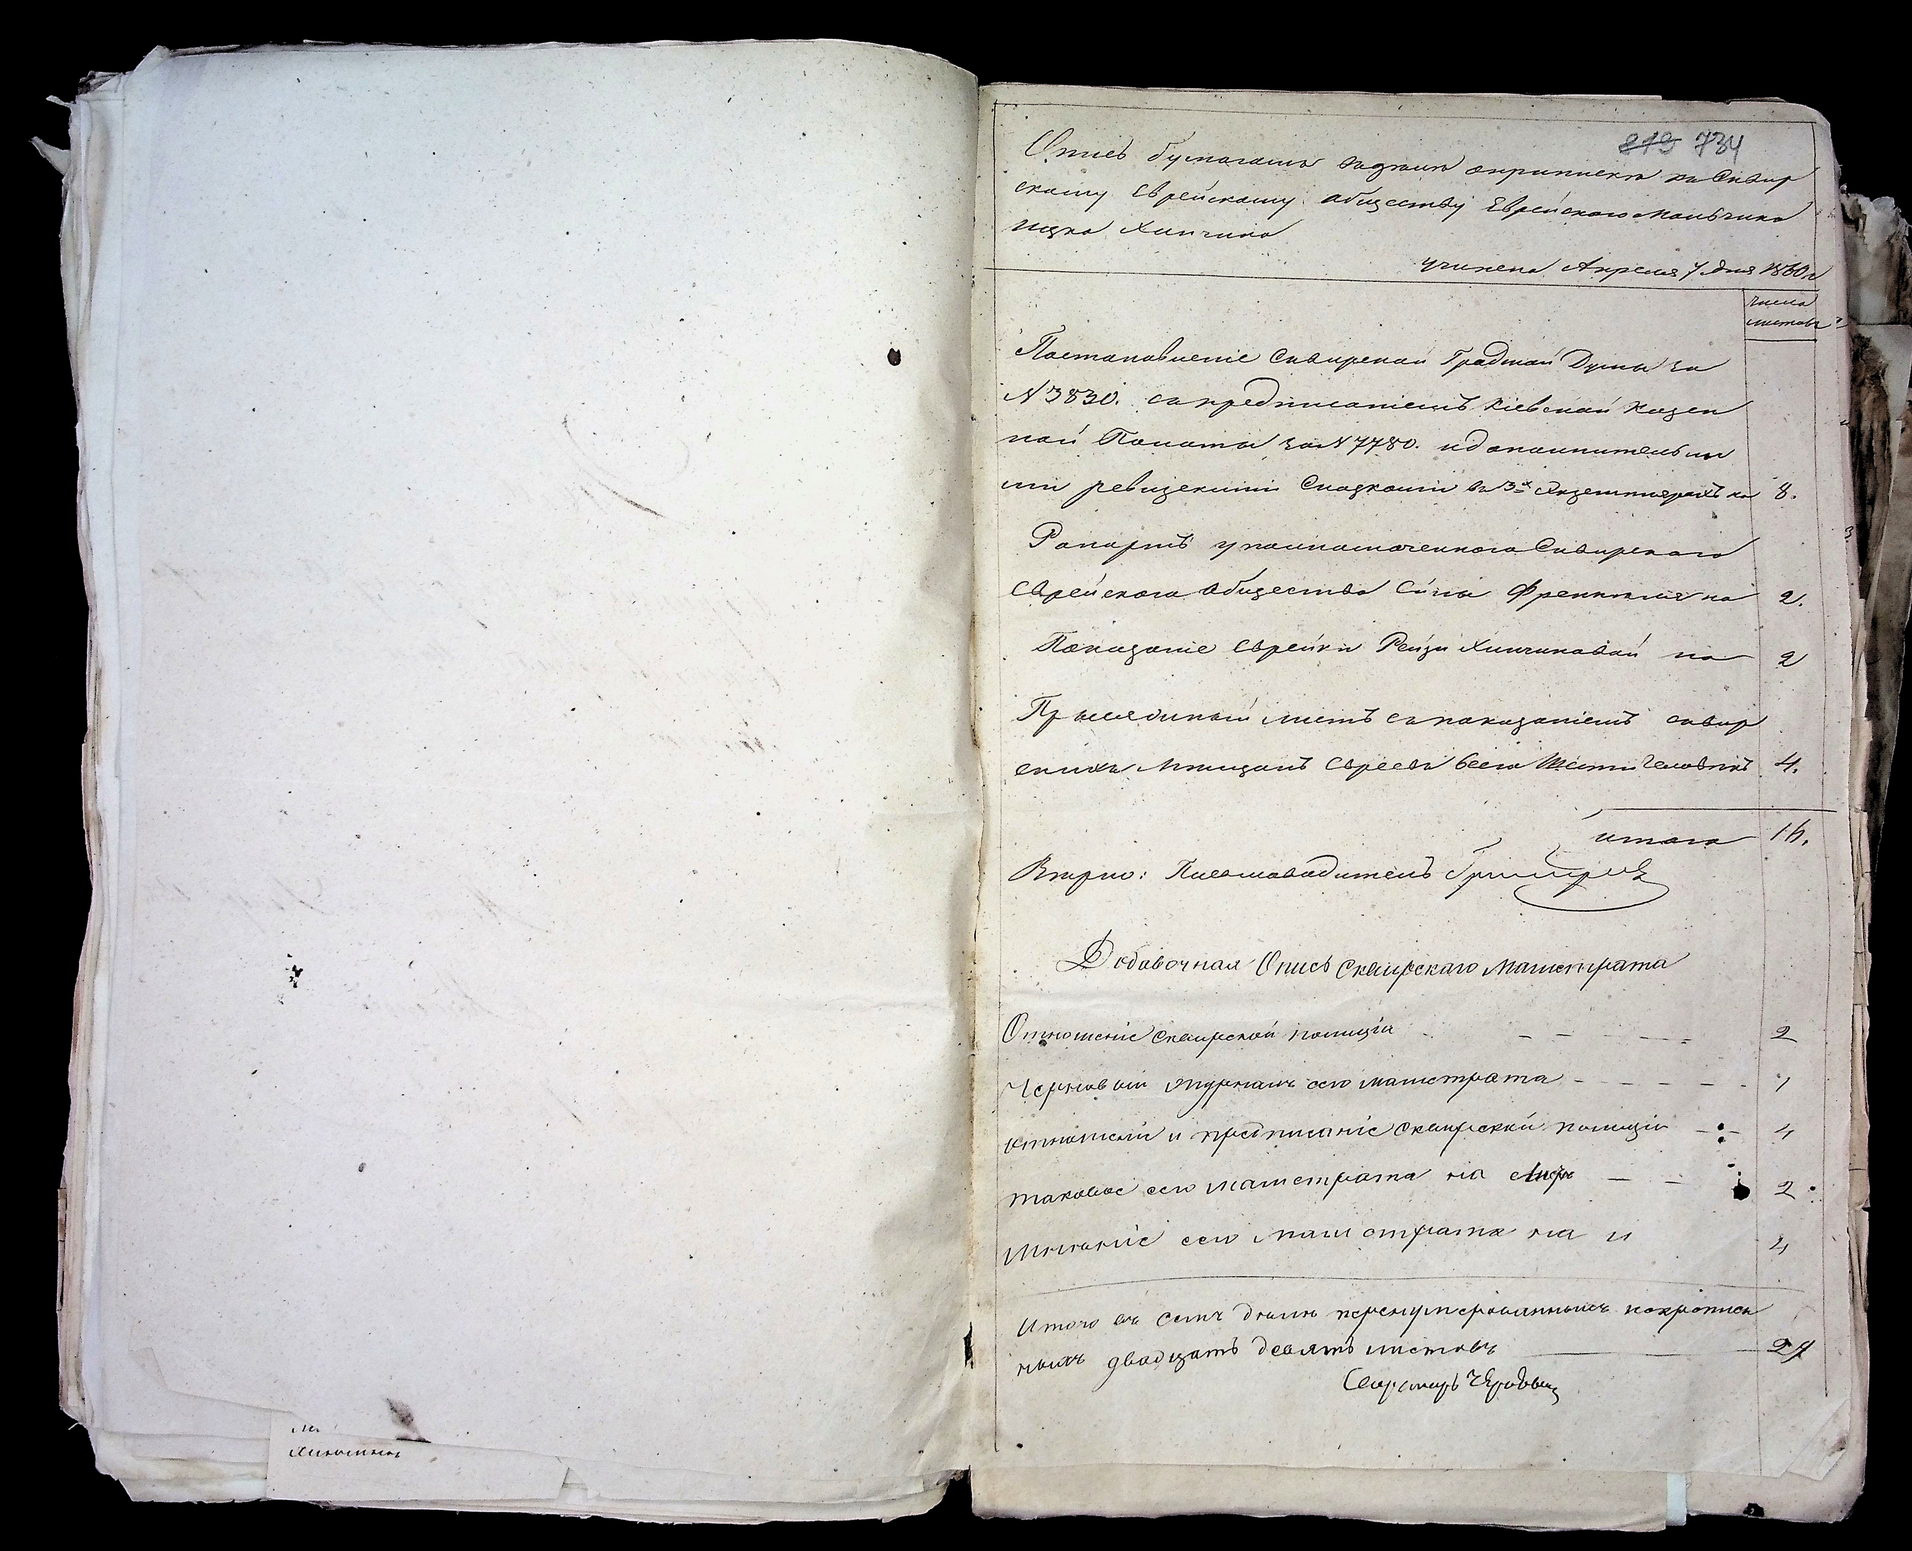 813 734
Опись бумагамъ въ дѣлѣ о припискѣ къ Сквир
скому Еврейскому обществу Еврейского мальчика
Ицка Хинчина
учинена Апреля 7 дня 1860 г
число
листовъ
Постановленіе Сквирской Градской Думы за
N 3830. съ предписаніемъ Кіевской Казен
ной Палаты за N 7780. и дополнительны
ми ревизскими Сказками въ 3х экземплярахъ на 8.
Рапортъ уполномоченного Сквирского
Еврейского общества Френкеля на 2.
Показаніе Еврейки Рейзи Хинчиковой на 2
Присяжный листъ съ показаніемъ сквир
скихъ мѣщанъ Евреевъ всего шести человѣкъ 4.
итого 16.
Вѣрно: Письмоводитель
Добавочная Опись Сквирскаго Магистрата
Отношеніе Сквирской полиціи 2
Черновый журналъ сего магистрата 1
отношеніе и предписаніе Сквирской полиціи 4
таковое сего магистрата на 2
Мнѣніе сего магистрата на 4
Итого въ семъ дѣлѣ перенумерованныхъ и скрѣплен
ныхъ двадцать девять листовъ 29
Секретарь